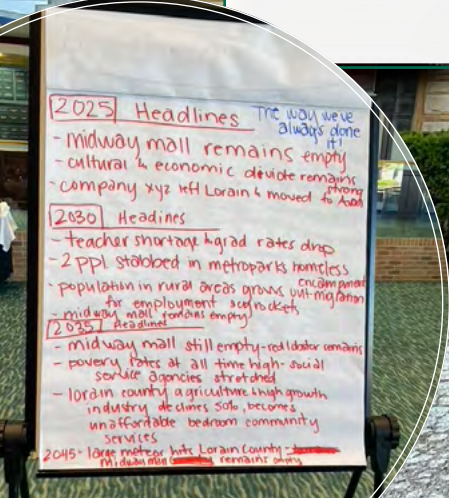 2025 Headlines
The way we've
always done
it!
- midway mall remains empty
- cultural & economic divide remains
strong
- company xyz left Lorain & moved to
2030 Headines
- teacher shortage & grad rates drop
- 2 ppl stabbed in metroparks homeless
encampment
- population in rural areas grows out-migration
for employment scyrockets
- midway mall remains empty
2035 Headlines
- midway mall still empty-red lobster remains
- povery rates at all time high- social
service agencies stretched
- lorain county agriculture & high growth
industry declines 50%, becomes
unaffordable bedroom community
services
2045- large meteor hits Lorain County -
midway mall remains empty